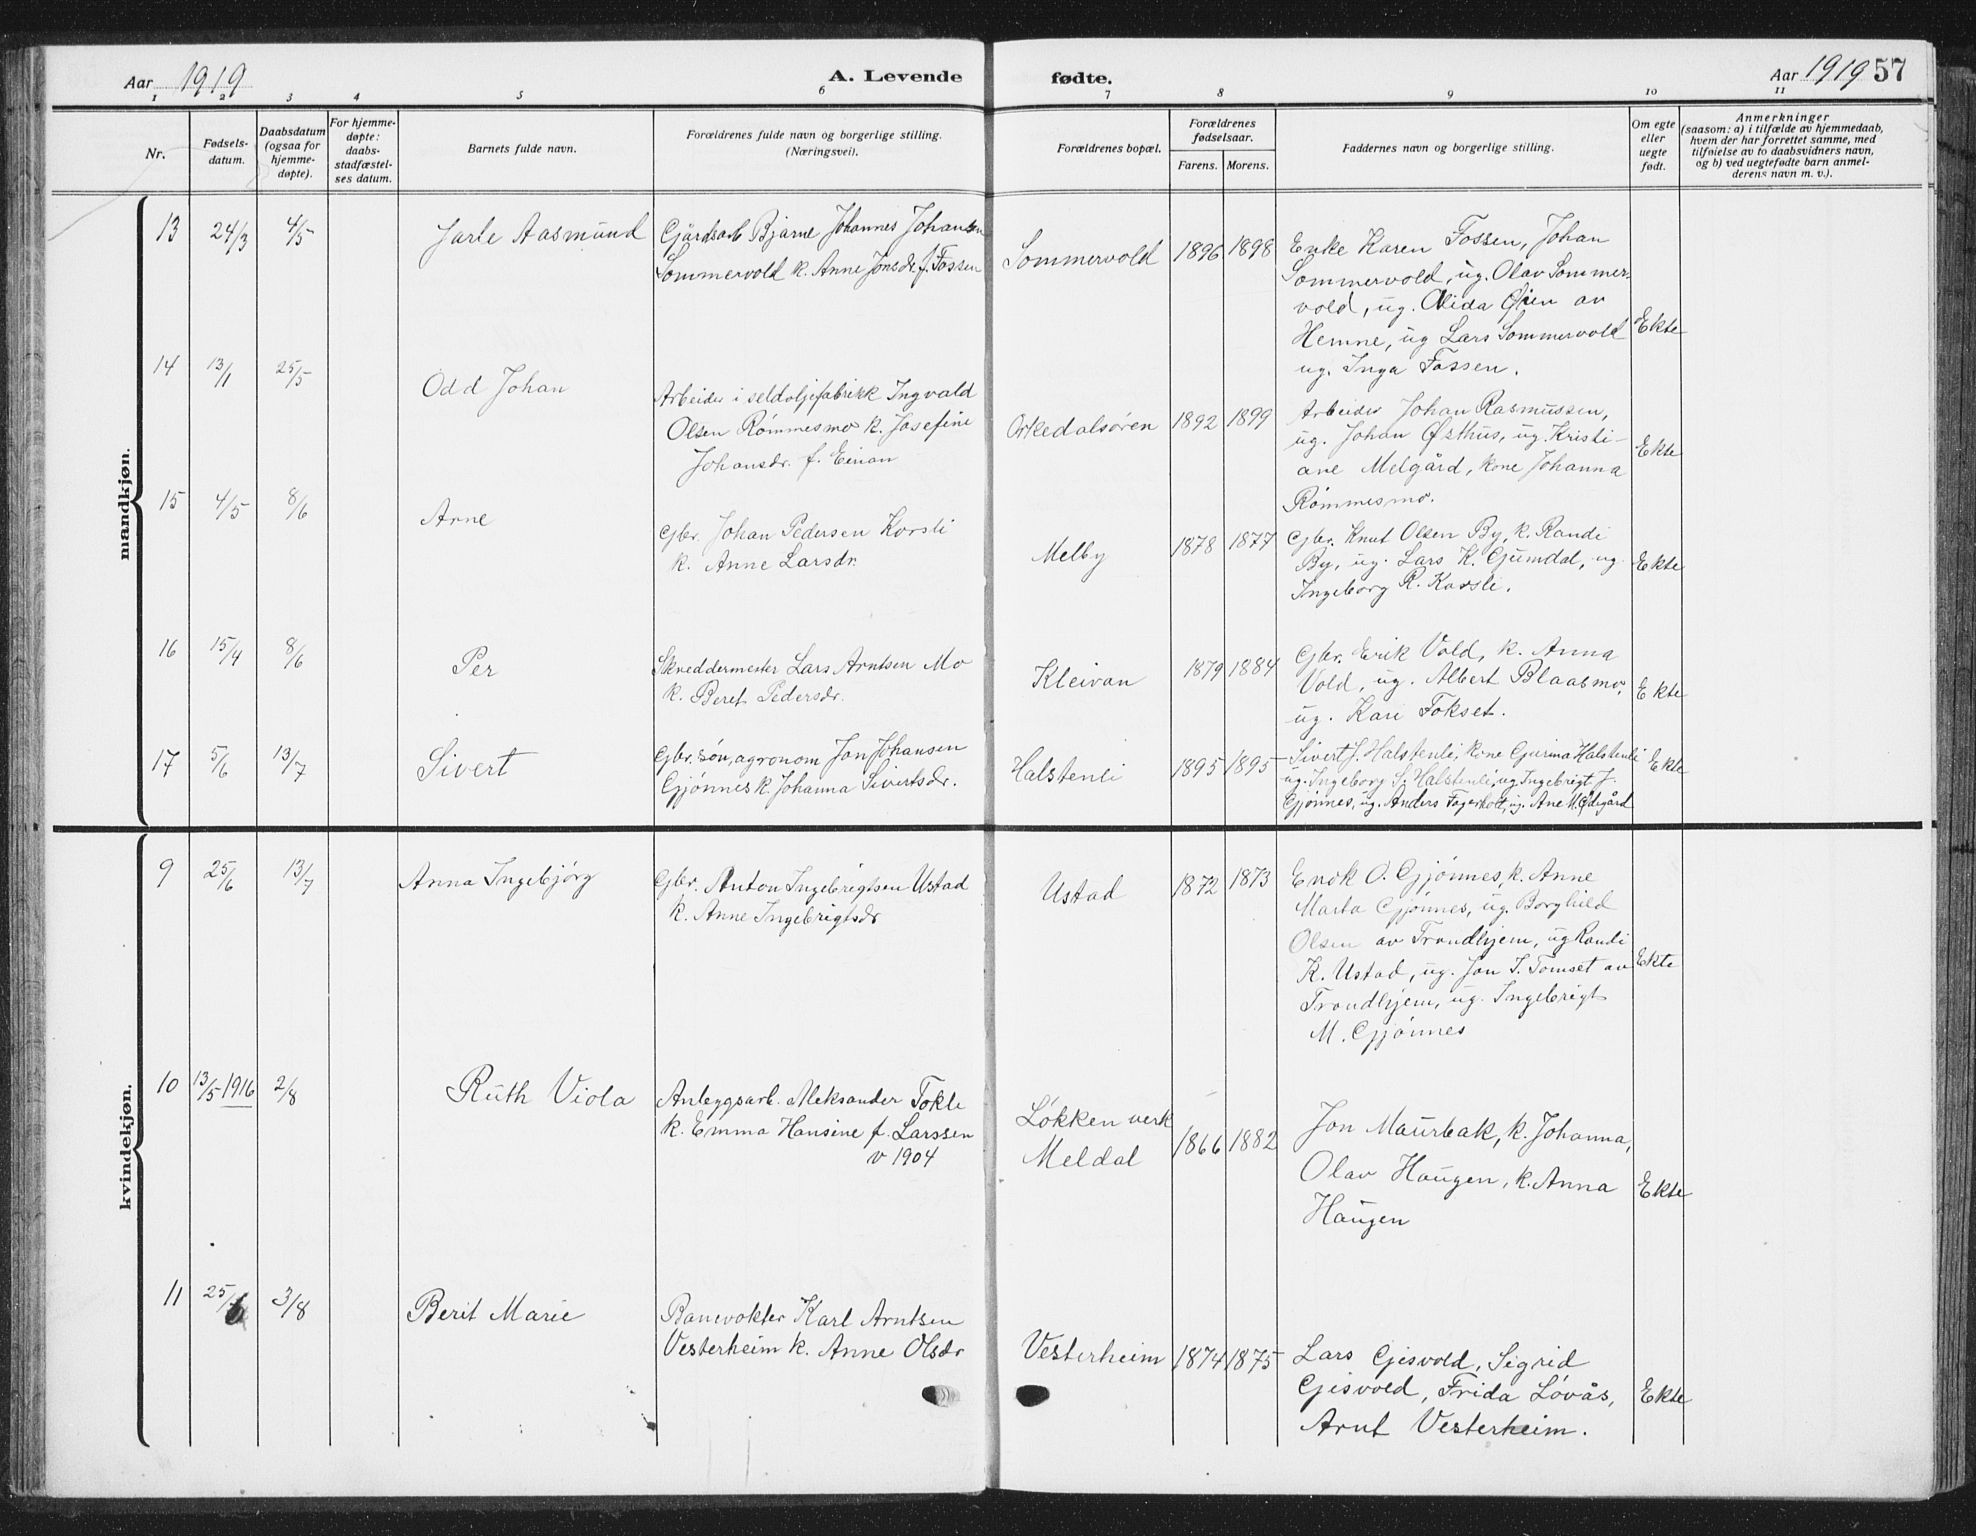 Aar 1919
A. Levende
fødte.
Aar 1919 57
1 2 3 4 5 6 7 8 9 10 11
Nr.
Fødsels-
datum.
Daabsdatum
(ogsaa for
hjemme-
døpte).
For hjemme-
døpte:
daabs-
stadfæstel-
ses datum.
Barnets fulde navn.
Forældrenes fulde navn og borgerlige stilling.
(Næringsvei).
Forældrenes bopæl.
Forældrenes
fødselsaar.
Farens. Morens.
Faddernes navn og borgerlige stilling.
Om egte
eller
uegte
født.
Anmerkninger
(saasom: a) i tilfælde av hjemmedaab,
hvem der har forrettet samme, med
tilføielse av to daabsvidners navn,
og b) ved uegtefødte barn anmel-
derens navn m. v.).
mandkjøn.
13 24/3 4/5 Jarle Aasmund
Gårdsarb Bjarne Johannes Johansen
Sommervold k. Anne Jonsdr. f. Fossen
Sommervold 1896 1898
Enke Karen Fossen, Johan
Sommervold, ug. Olav Sommer-
vold, ug. Alida Øien av
Hemne, ug Lars Sommervold
ug. Inga Fossen.
Ekte
14 13/1 25/5 Odd Johan
Arbeider i seldoljefabrikk Ingvald
Olsen Rømmesmo k. Josefine
Johansdr. f. Einan
Orkedalsøren 1892 1899
Arbeider Johan Rasmussen,
ug. Johan Østhus, ug. Kristi-
ane Melgård, kone Johanna
Rømmesmo.
Ekte
15 4/5 8/6 Arne
Gbr. Johan Pedersen Korsli
k. Anne Larsdr.
Melby 1878 1877
Gbr. Knut Olsen By, k. Randi
By, ug. Lars K. Gjumdal, ug.
Ingeborg R. Korsli.
Ekte
16 15/4 8/6 Per
Skreddermester Lars Arntsen Mo
k. Beret Pedersdr.
Kleivan 1879 1884
Gbr. Erik Vold, k. Anna
Vold, ug. Albert Blaasmo,
ug. Kari Fokset.
Ekte
17 5/6 13/7 Sivert
Gbr. søn, agronom Jon Johansen
Gjønnes k. Johanna Sivertsdr.
Halstenli 1895 1895
Sivert J. Halstenli, kone Gjurina Halstenli
ug. Ingeborg S. Halstenli, ug Ingebrigt J.
Gjønnes, ug. Anders Fagerholt, ug. Ane M. Ødegård
Ekte
kvindekjøn.
9 25/6 13/7 Anna Ingebjørg
Gbr. Anton Ingebrigtsen Ustad
k. Anne Ingebrigtsdr
Ustad 1872 1873
Enok O. Gjønnes, k. Anne
Marta Gjønnes, ug. Borghild
Olsen av Trondhjem, ug Randi
K. Ustad, ug. Jon I. Tomset av
Trondhjem, ug. Ingebrigt
M. Gjønnes
Ekte
10 13/5 1916 2/8 Ruth Viola
Anleggsarb. Aleksander Tokle
k. Emma Hansine f. Larssen
v 1904
Løkken verk
Meldal
1866 1882
Jon Maurbak, k. Johanna,
Olav Haugen, k. Anna
Haugen
Ekte
11 25/6 3/8 Berit Marie
Banevokter Karl Arntsen
Vesterheim k. Anne Olsdr
Vesterheim 1874 1875
Lars Gjisvold, Sigrid
Gjisvold, Frida Løvås,
Arnt Vesterheim.
Ekte